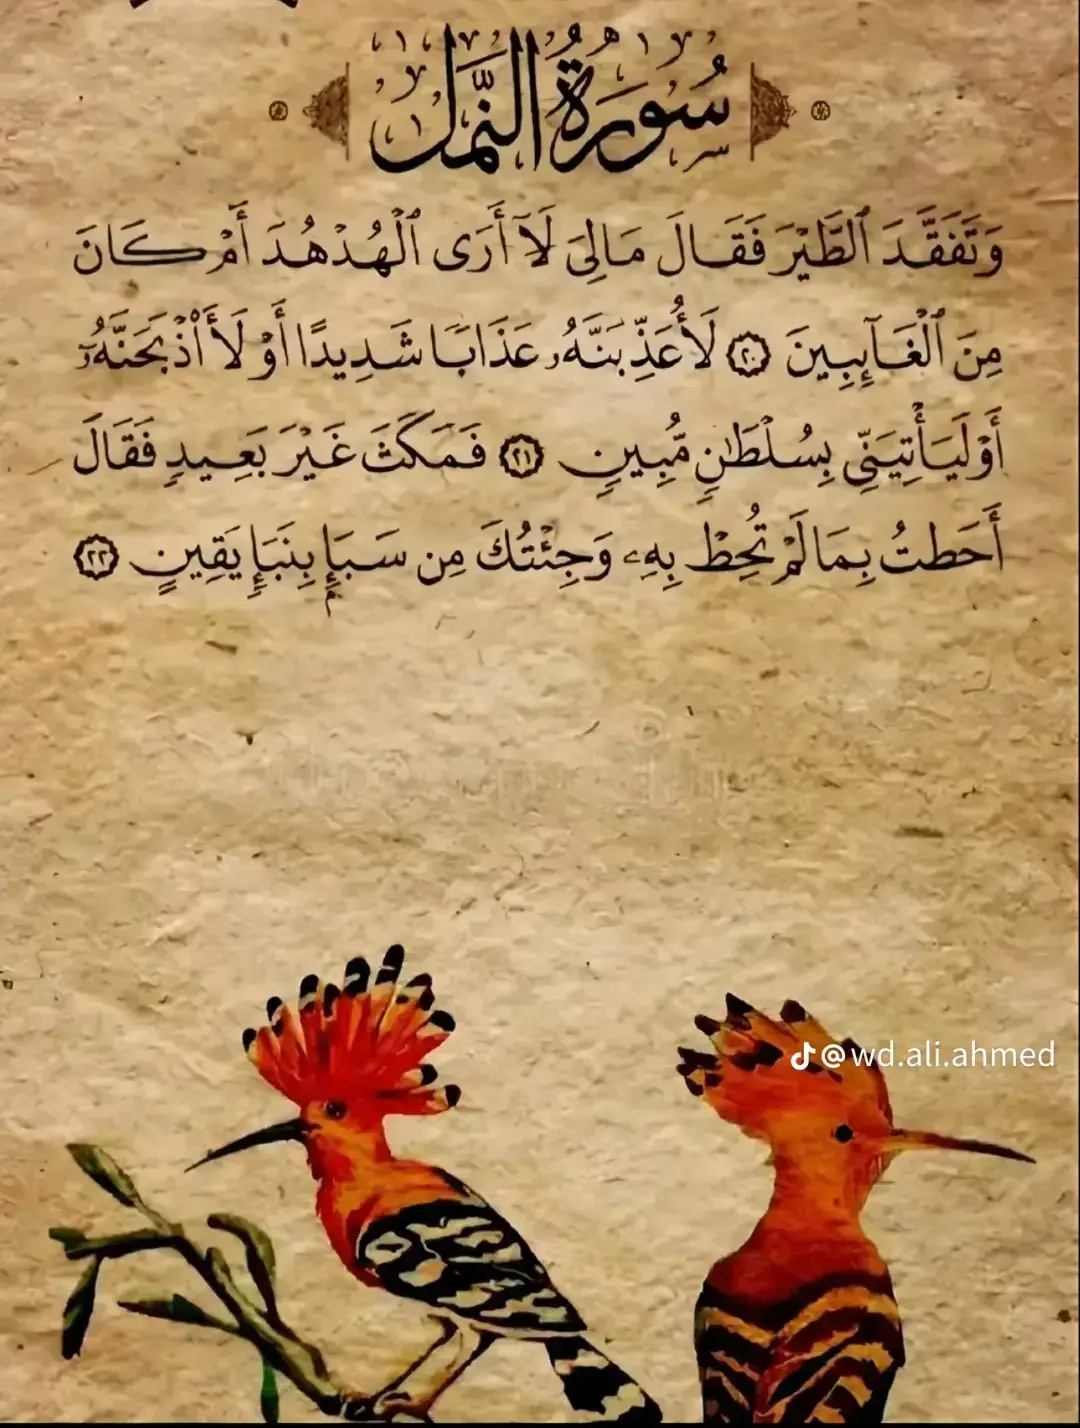 سُورَةُ النَّمل
وَتَفَقَّدَ ٱلطَّيْرَ فَقَالَ مَالِىَ لَآ أَرَى ٱلْهُدْهُدَ أَمْ كَانَ
مِنَ ٱلْغَآئِبِينَ ٢٠ لَأُعَذِّبَنَّهُۥ عَذَابًا شَدِيدًا أَوْ لَأَا۟ذْبَحَنَّهُۥٓ
أَوْ لَيَأْتِيَنِّى بِسُلْطَٰنٍ مُّبِينٍ ٢١ فَمَكَثَ غَيْرَ بَعِيدٍ فَقَالَ
أَحَطتُ بِمَا لَمْ تُحِطْ بِهِۦ وَجِئْتُكَ مِن سَبَإٍۭ بِنَبَإٍ يَقِينٍ ٢٢
@wd.ali.ahmed